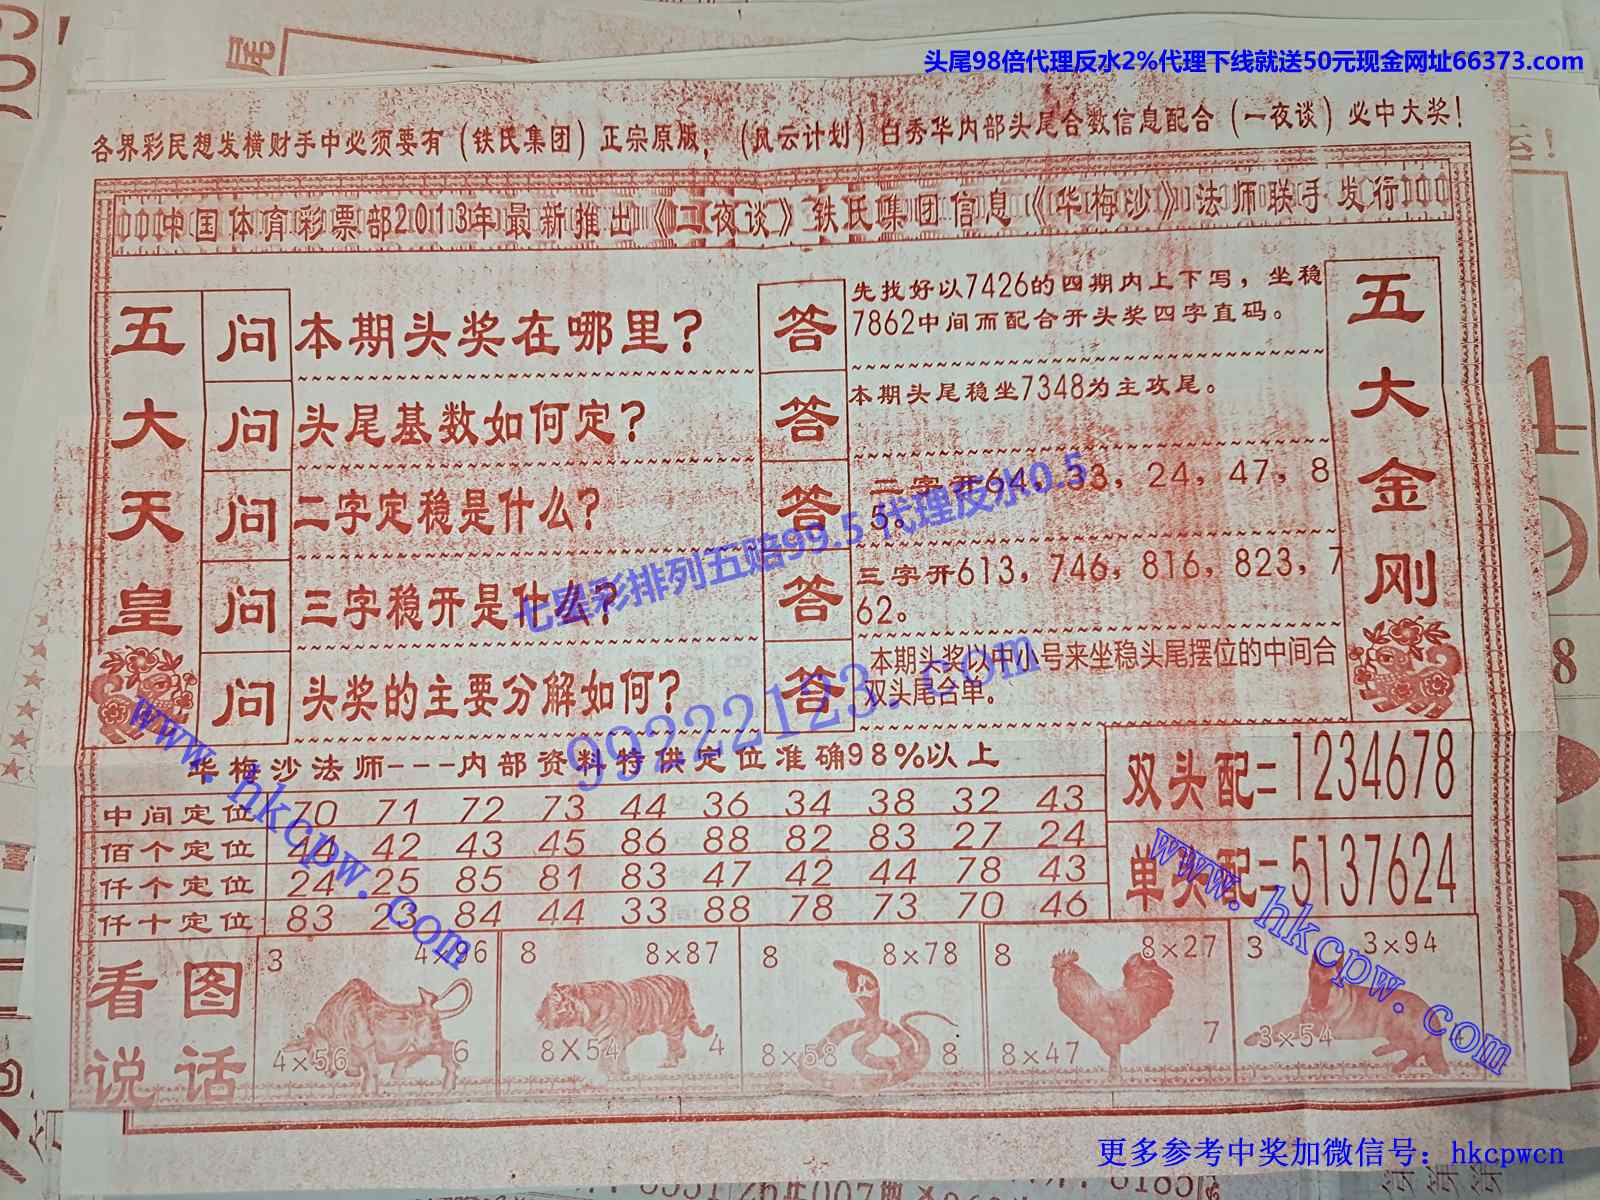 头尾98倍代理反水2%代理下线就送50元现金网址66373.com
各界彩民想发横财手中必须要有(铁氏集团)正宗原版,(风云计划)白秀华内部头尾合数信息配合(一夜谈)必中大奖!
中国体育彩票部2013年最新推出《一夜谈》铁氏集团信息《华梅沙》法师联手发行
五大天皇
问 本期头奖在哪里?
答 先找好以7426的四期内上下写,坐稳
7862中间而配合开头奖四字直码。
问 头尾基数如何定?
答 本期头尾稳坐7348为主攻尾。
问 二字定稳是什么?
答 二字开64,33,24,47,8
5。
问 三字稳开是什么?
答 三字开613,746,816,823,7
62。
问 头奖的主要分解如何?
答 本期头奖以中小号来坐稳头尾摆位的中间合
双头尾合单。
五大金刚
七星彩排列五赔99.5代理反水0.5
99222123.com
华梅沙法师---内部资料特供定位准确98%以上
中间定位 70 71 72 73 44 36 34 38 32 43
佰个定位 44 42 43 45 86 88 82 83 27 24
仟个定位 24 25 85 81 83 47 42 44 78 43
仟十定位 83 23 84 44 33 88 78 73 70 46
双头配=1234678
单头配=5137624
www.hkcpw.com
www.hkcpw.com
看图
说话
3 4×96
4×56 6
8 8×87
8×54 4
8 8×78
8×58 8
8 8×27
8×47 7
3 3×94
3×54 4
更多参考中奖加微信号:hkcpwcn